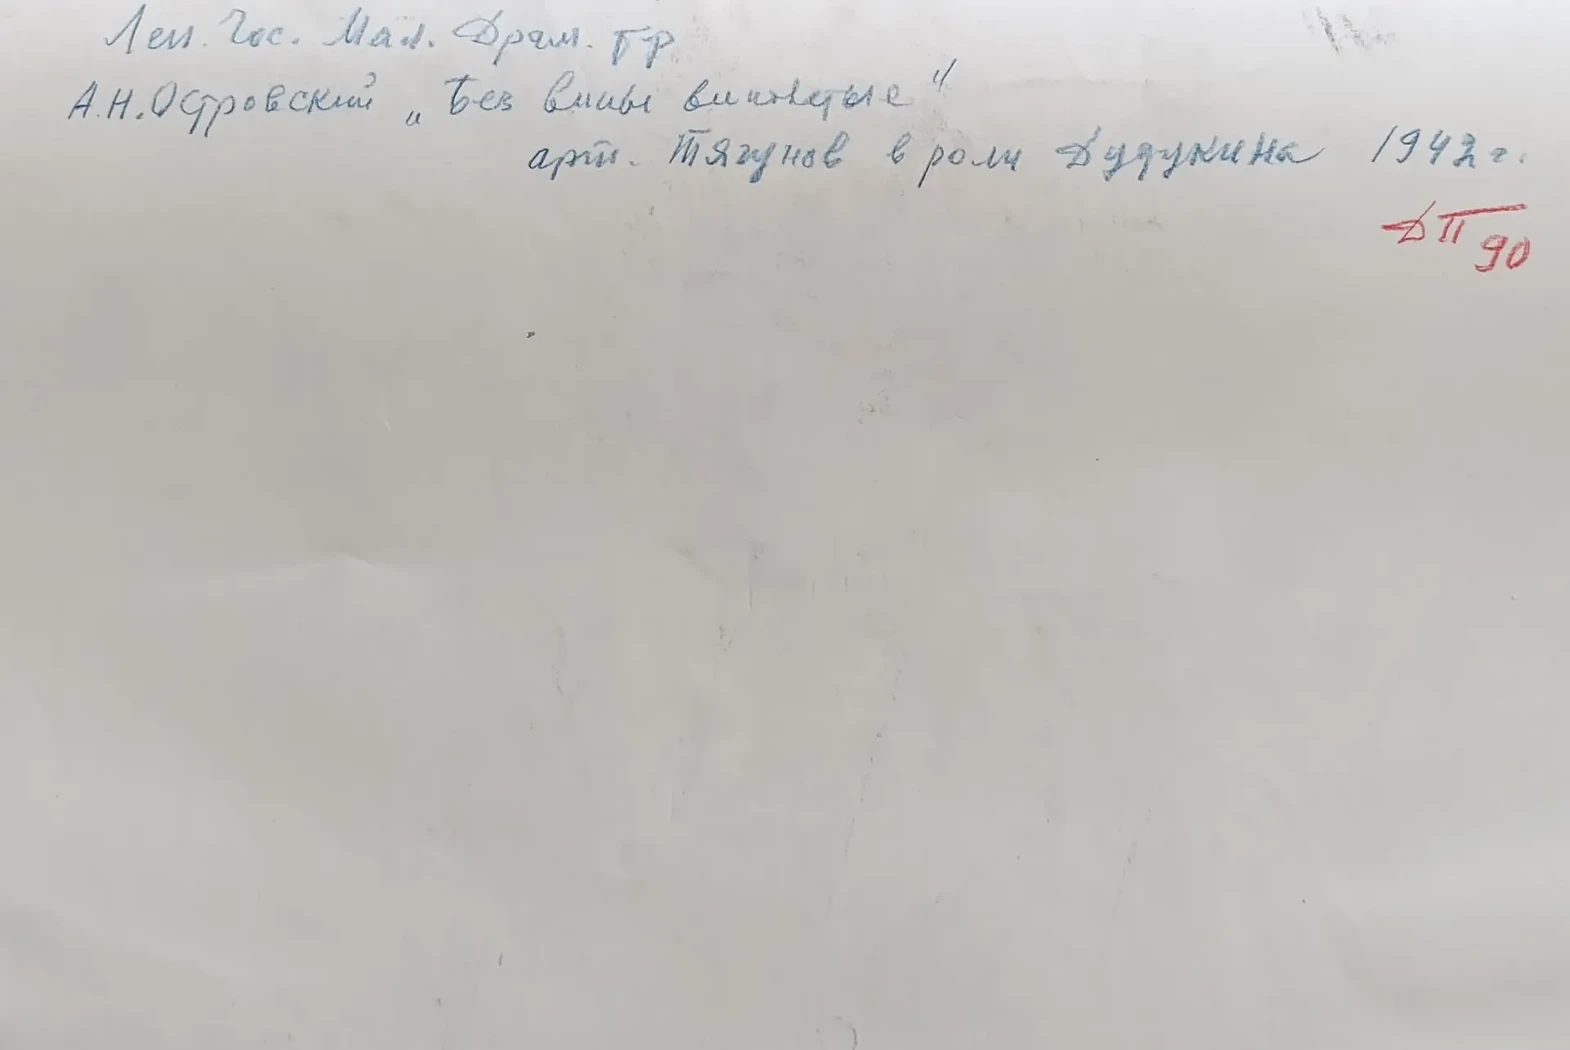 Лен. Гос. Мал. Драм. тр
А.Н.Островский „Без вины виноватые"
арт. Тягунов в роли Дудукина 1942 г.
Д II 90